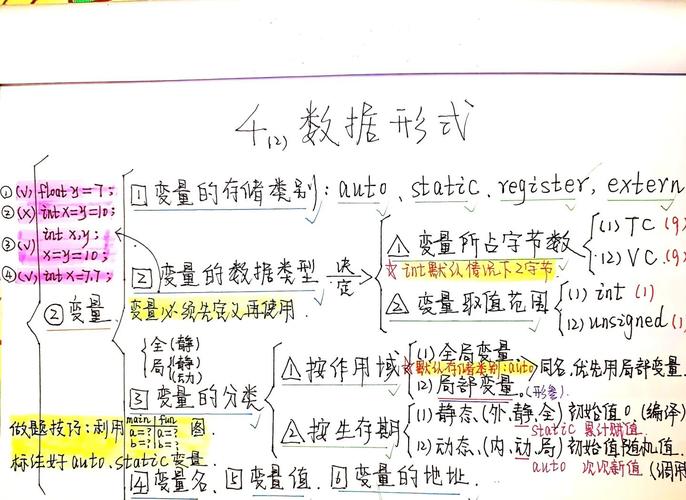 4.(2)数据形式
①(√) float y=7;
②(×) int x=y=10;
③(√) int x,y;
x=y=10;
④(√) int x=7.7;
②变量
1 变量的存储类别:auto、static、register, extern
2 变量的数据类型 决定
变量必须先定义再使用.
① 变量所占字节数
☆ int默认情况下2字节
(1) TC (9)
(2) VC (9)
② 变量取值范围
(1) int (1)
(2) unsigned (1)
全(静)
局(静)
(动)
3 变量的分类
① 按作用域
(1) 全局变量
☆默认存储类别:auto
(2) 局部变量。(形参)
同名,优先用局部变量
② 按生存期
(1) 静态、(外、静、全) 初始值0.(编译)
static 累计赋值
(2) 动态、(内、动、局) 初始值随机值.
auto 次次新值 (调用
做题技巧:利用 图.
main fun
a=? a=?
b=? b=?
标注好auto、static变量.
4 变量名、5 变量值. 6 变量的地址.